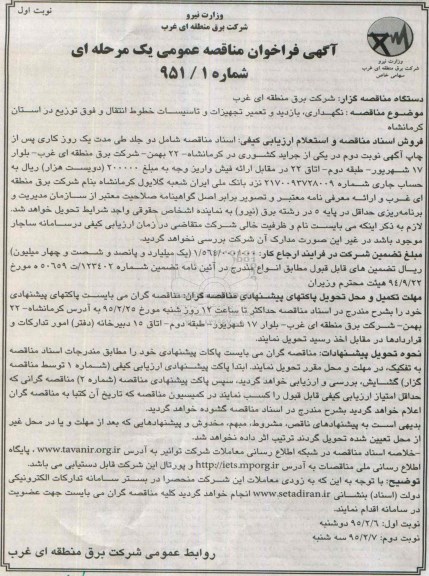 وزارت نیرو
شرکت برق منطقه ای غرب
نوبت اول
وزارت نیرو
شرکت برق منطقه ای غرب
سهامی خاص
آگهی فراخوان مناقصه عمومی یک مرحله ای
شماره ۹۵۱/۱
دستگاه مناقصه گزار: شرکت برق منطقه ای غرب
موضوع مناقصه: نگهداری، بازدید و تعمیر تجهیزات و تاسیسات خطوط انتقال و فوق توزیع در استان
کرمانشاه
فروش اسناد مناقصه و استعلام ارزیابی کیفی: اسناد مناقصه شامل دو جلد طی مدت یک روز کاری پس از
چاپ آگهی نوبت دوم در یکی از جراید کشوری در کرمانشاه-۲۲ بهمن- شرکت برق منطقه ای غرب-بلوار
۱۷ شهریور- طبقه دوم-اتاق ۲۲ در مقابل ارائه فیش واریز وجه به مبلغ ۲۰۰۰۰۰ (دویست هزار) ریال به
حساب جاری شماره ۲۱۷۰۰۹۳۷۲۸۰۰۹ نزد بانک ملی ایران شعبه گلایول کرمانشاه بنام شرکت برق منطقه
ای غرب و ارائه معرفی نامه معتبر و تصویر برابر اصل گواهینامه صلاحیت معتبر از سازمان مدیریت و
برنامه‌ریزی حداقل در پایه ۵ در رشته برق (نیرو) به نماینده اشخاص حقوقی واجد شرایط تحویل خواهد شد.
لازم به ذکر اینکه می بایست نام و ظرفیت خالی شرکت متقاضی در زمان ارزیابی کیفی درسامانه ساجار
موجود باشد در غیر این صورت مدارک آن شرکت بررسی نخواهد گردید.
مبلغ تضمین شرکت در فرایند ارجاع کار: (یک میلیارد و پانصد و شصت و چهار میلیون)
ریال تضمین های قابل قبول مطابق انواع مندرج در آئین نامه تضمین شماره ۱۲۳۴۰۲/ت ۵۰۶۵۹ ه مورخ
۹۴/۹/۲۲ هیئت محترم وزیران
مهلت تکمیل و محل تحویل پاکتهای پیشنهادی مناقصه گران: مناقصه گران می بایست پاکتهای پیشنهادی
خود را بشرح مندرج در اسناد مناقصه حداکثر تا ساعت ۱۲ روز شنبه مورخ ۹۵/۲/۲۵ به آدرس کرمانشاه- ۲۲
بهمن- شرکت برق منطقه ای غرب- بلوار ۱۷ شهریور-طبقه دوم- اتاق ۱۵ دبیرخانه (دفتر) امور تدارکات و
قراردادها در مقابل اخذ رسید تحویل نمایند.
نحوه تحویل پیشنهادات: مناقصه گران می بایست پاکات پیشنهادی خود را مطابق مندرجات اسناد مناقصه
به تفکیک، در مهلت و محل مقرر تحویل نمایند. ابتدا پاکت پیشنهادی ارزیابی کیفی (شماره ۱ توسط مناقصه
گزار) گشایش، بررسی و ارزیابی خواهد گردید، سپس پاکت پیشنهادی مناقصه (شماره ۲) مناقصه گرانی که
حداقل امتیاز ارزیابی کیفی قابل قبول را کسب نمایند در کمیسیون مناقصه که تاریخ آن کتبا به مناقصه گران
اعلام خواهد گردید بشرح مندرج در اسناد مناقصه گشوده خواهد گردید.
بدیهی است به پیشنهادهای ناقص، مشروط، مبهم، مخدوش و پیشنهادهایی که بعد از مهلت و یا در محل غیر
از محل تعیین شده تحویل گردند ترتیب اثر داده نخواهد شد.
-خلاصه اسناد مناقصه در شبکه اطلاع رسانی معاملات شرکت توانیر به آدرس www.tavanir.org.ir ، پایگاه
اطلاع رسانی ملی مناقصات به آدرس http://iets.mporg.ir و پورتال این شرکت قابل دستیابی می باشد.
توضیح: با توجه به این که به زودی معاملات این شرکت منحصرا در بستر سامانه تدارکات الکترونیکی
دولت (اسناد) بنشانی www.setadiran.ir انجام خواهد گردید کلیه مناقصه گران می بایست جهت عضویت
در سامانه اقدام نمایند.
نوبت اول: ۹۵/۲/۶ دوشنبه
نوبت دوم: ۹۵/۲/۷ سه شنبه
روابط عمومی شرکت برق منطقه ای غرب